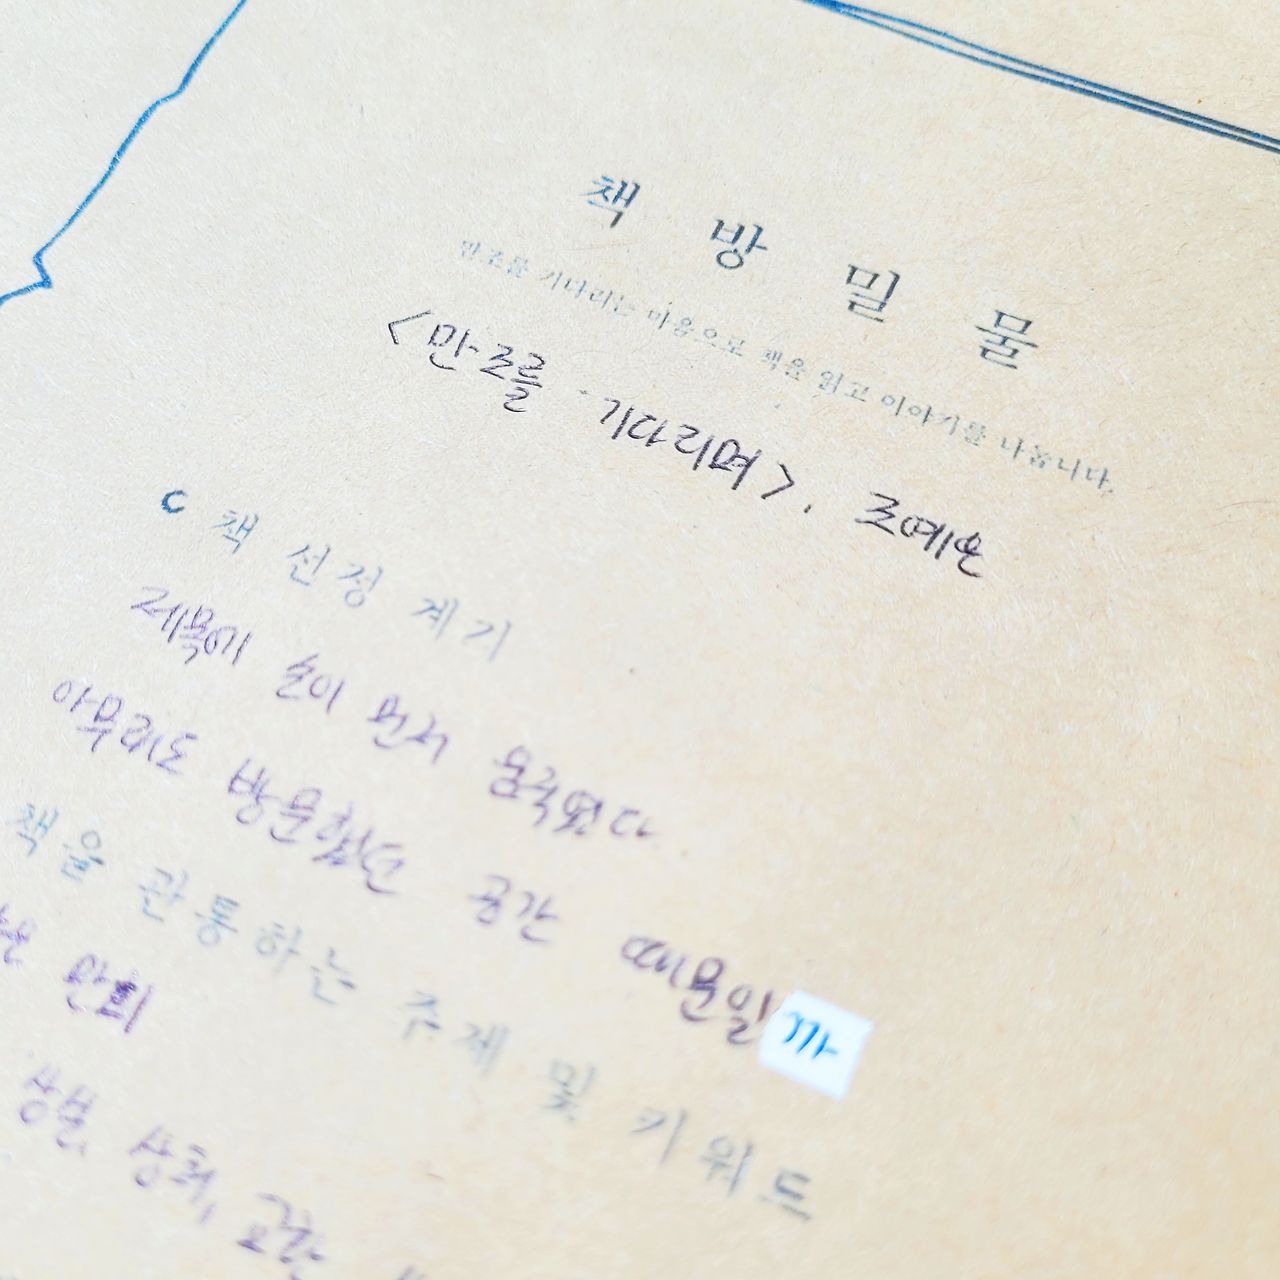 책 방 밀 물
만조를 기다리는 마음으로 책을 읽고 이야기를 나눕니다.
<만조를 기다리며>. 조예은
책 선정 계기
제목에 손이 먼저 움직였다.
아무래도 방문했던 공간 때문일까
책을 관통하는 주제 및 키워드
만회
상처,